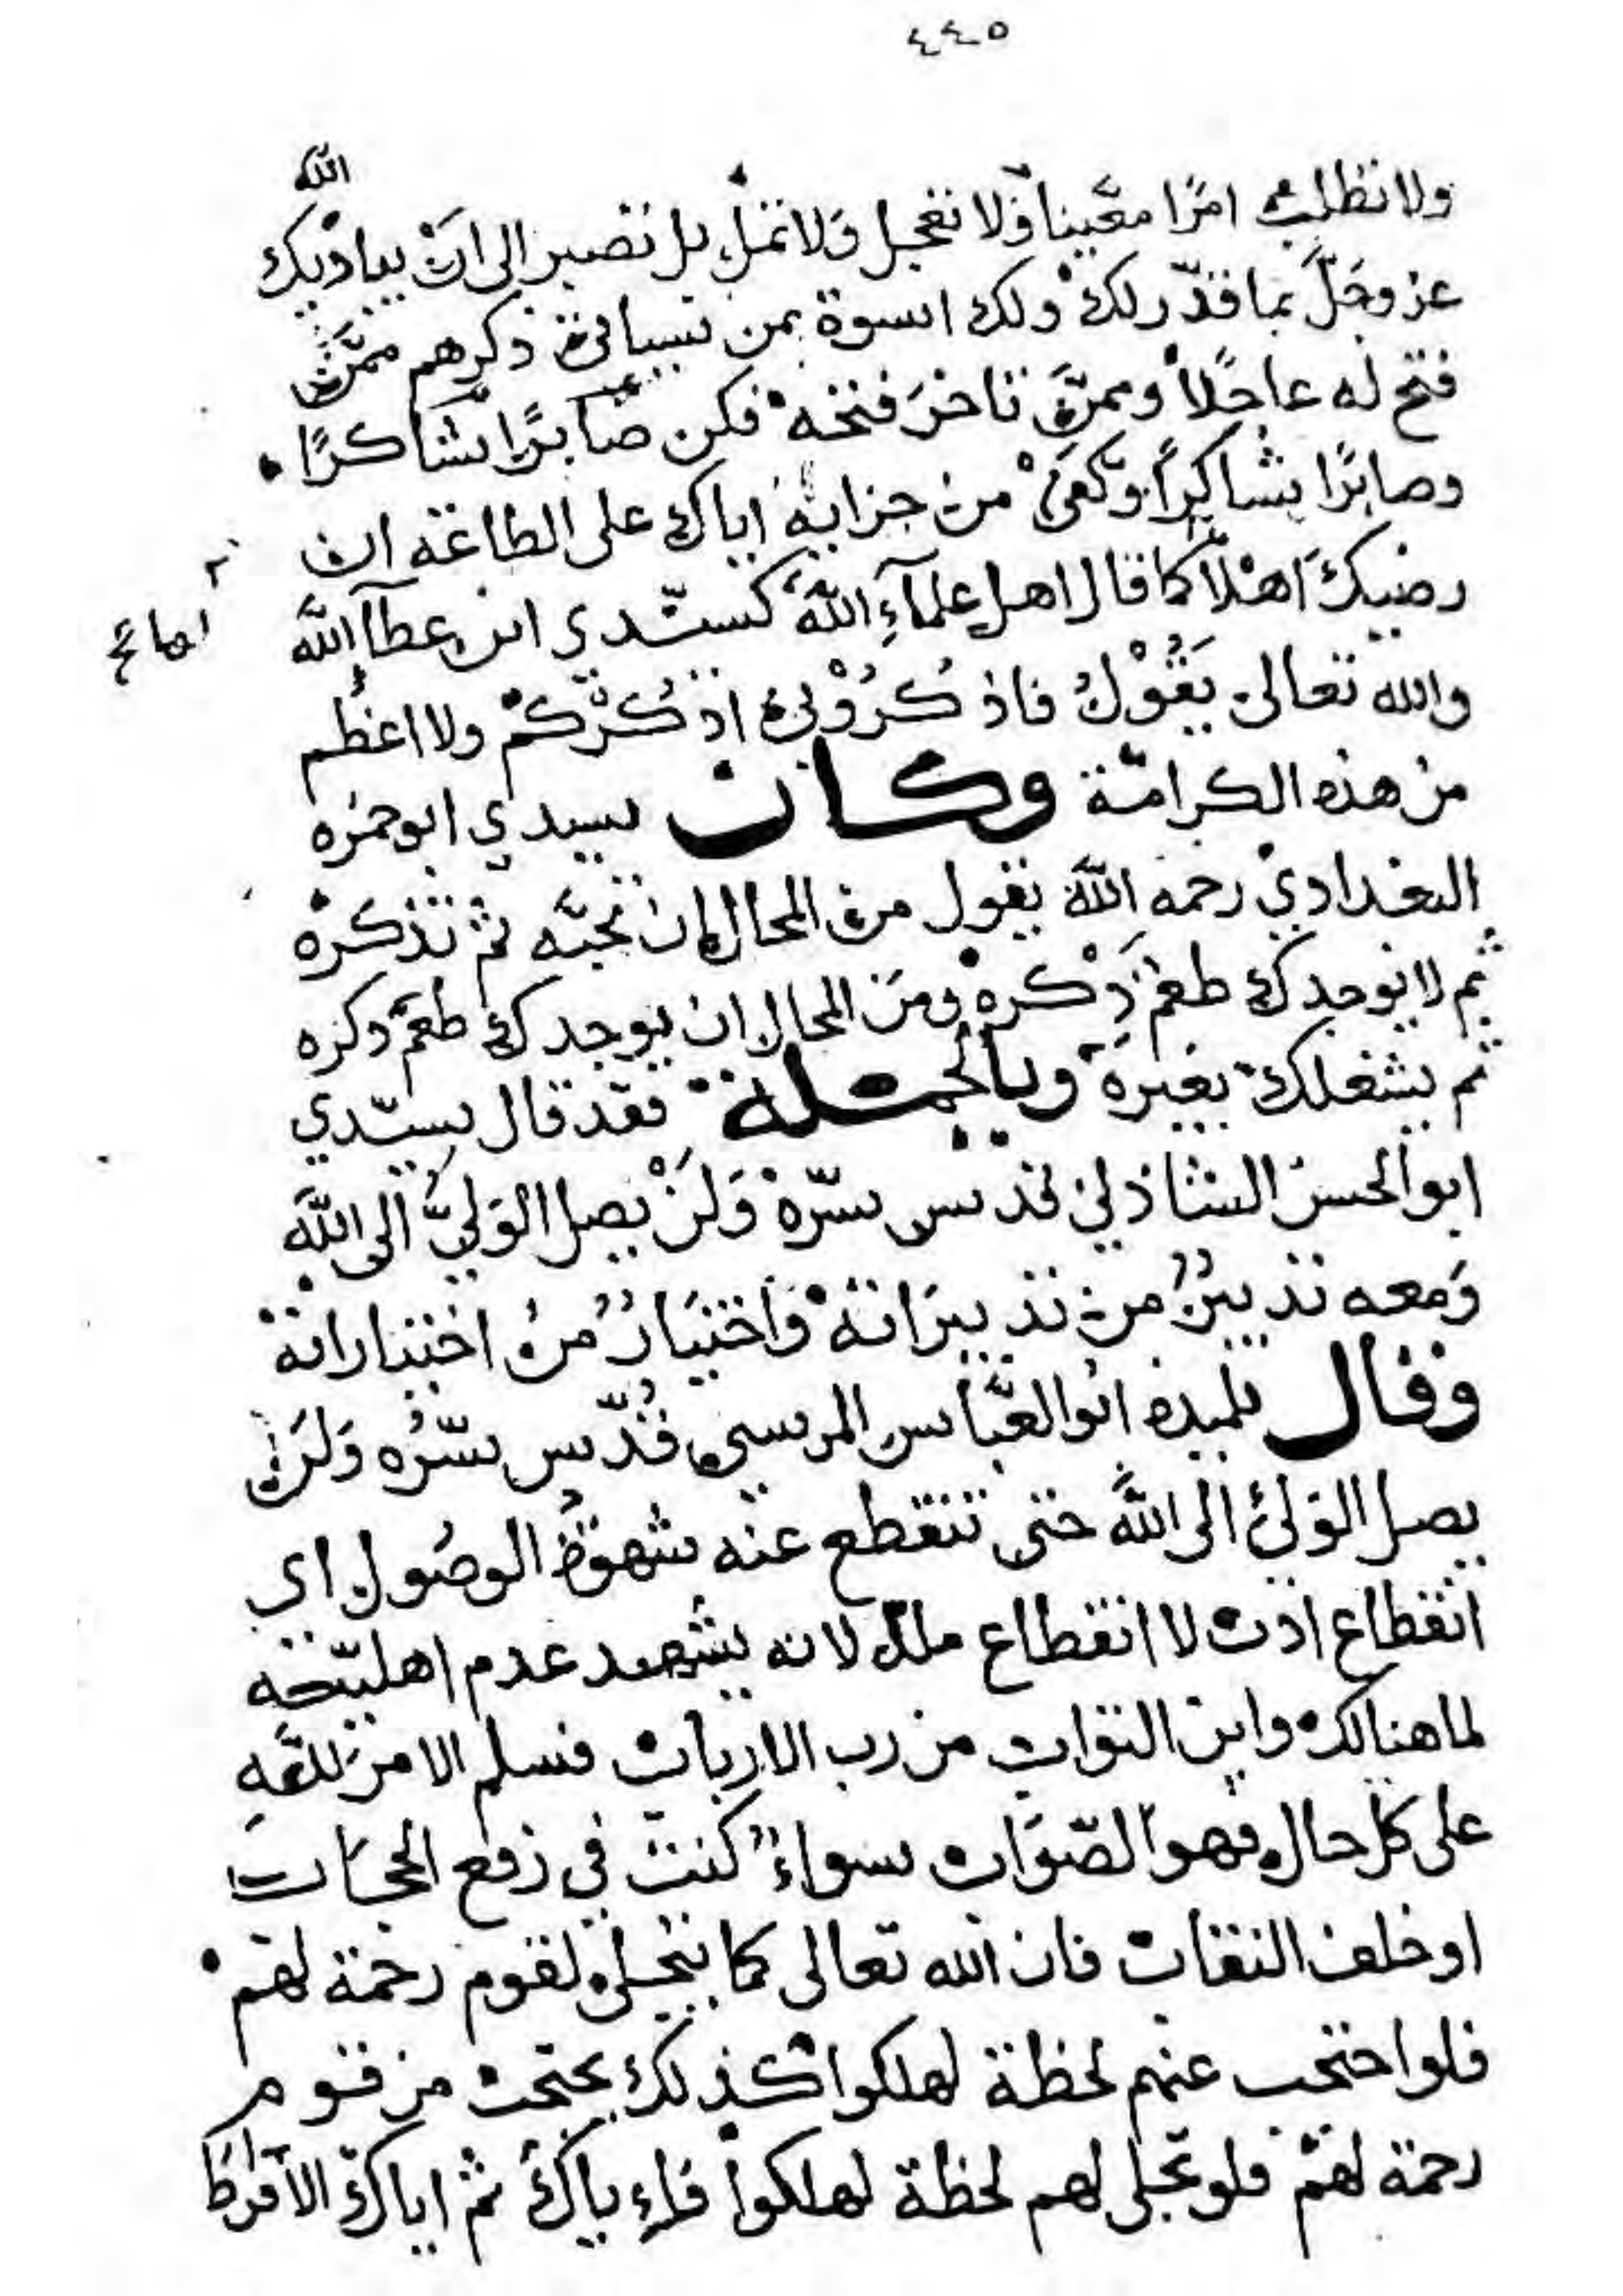 ٤٤٥
الله
ولا تطلب امرًا معّينا ولا تعجل ولا تمل بل تصبر الى ان يباديك
عز وجل بما قدّر لك ولك اسوة بمن سياتي ذكرهم ممن
فتح له عاجلًا وممن تاخر فتحه فكن صابرًا شاكرًا
وصابرًا شاكرًا وكفى من جزايه اياك على الطاعة ان
رضيك اهلًا كما قال اهل علماءِ الله كسيّدي ابن عطآ الله
والله تعالى يَقُوْلُ فاذكُرُوْني اذكُرْكمْ ولا اعظم
من هذه الكرامة وكان سيدي ابو حمزه
البغدادي رحمه الله يقول من المحال ان تحبّه ثم تذكره
ثم لا يوجدك طعم ذِكره ومن المحال ان يوجدك طعم ذكره
ثم يشغلك بغيره وبالجملة فقد قال سيّدي
ابو الحسن الشاذلي قدس سرّه وَلَنْ يصل الوَليُّ الى اللّه
وَمعه تدبيرٌ من تدبيراته وَاختيَارٌ من اختياراته
وقال تلميذه ابو العبّاس المرسي قُدّس سّرُه وَلَن
يصل الوَليُّ الى اللّه حتى تنقطع عنه شهوة الوصُول اي
انقطاع ادب لا انقطاع ملل لانه يشهد عدم اهليّته
لما هنالك واين التواب من رب الارباب فسلم الامر للّه
على كل حال فهو الصّوَاب سواءٌ كنت في رفع الحجاب
او خلف النقاب فان الله تعالى كما يتجلى لقوم رحمة لهم
فلو احتجب عنهم لحظة لهلكوا كذلك يحتجب من قوم
رحمة لهم فلو تجلى لهم لحظة لهلكوا فاءِياك ثم اياك الافراط